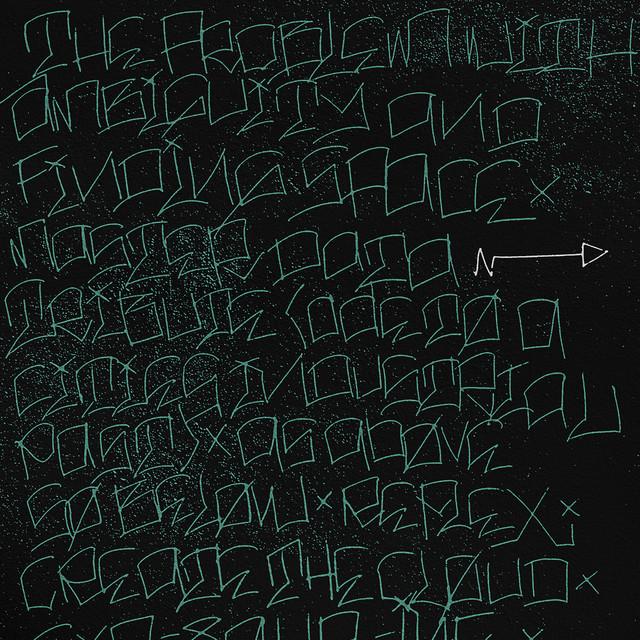 THE PROBLEM WITH
AMBIGUITY AND
FINDING SPACE x
MASTER DATA
TRIBUTE TØ A
CITIES INDUSTRIAL
PAST) x AS ABØVE
SØ BELØW x
CREATE THE CLØUD x